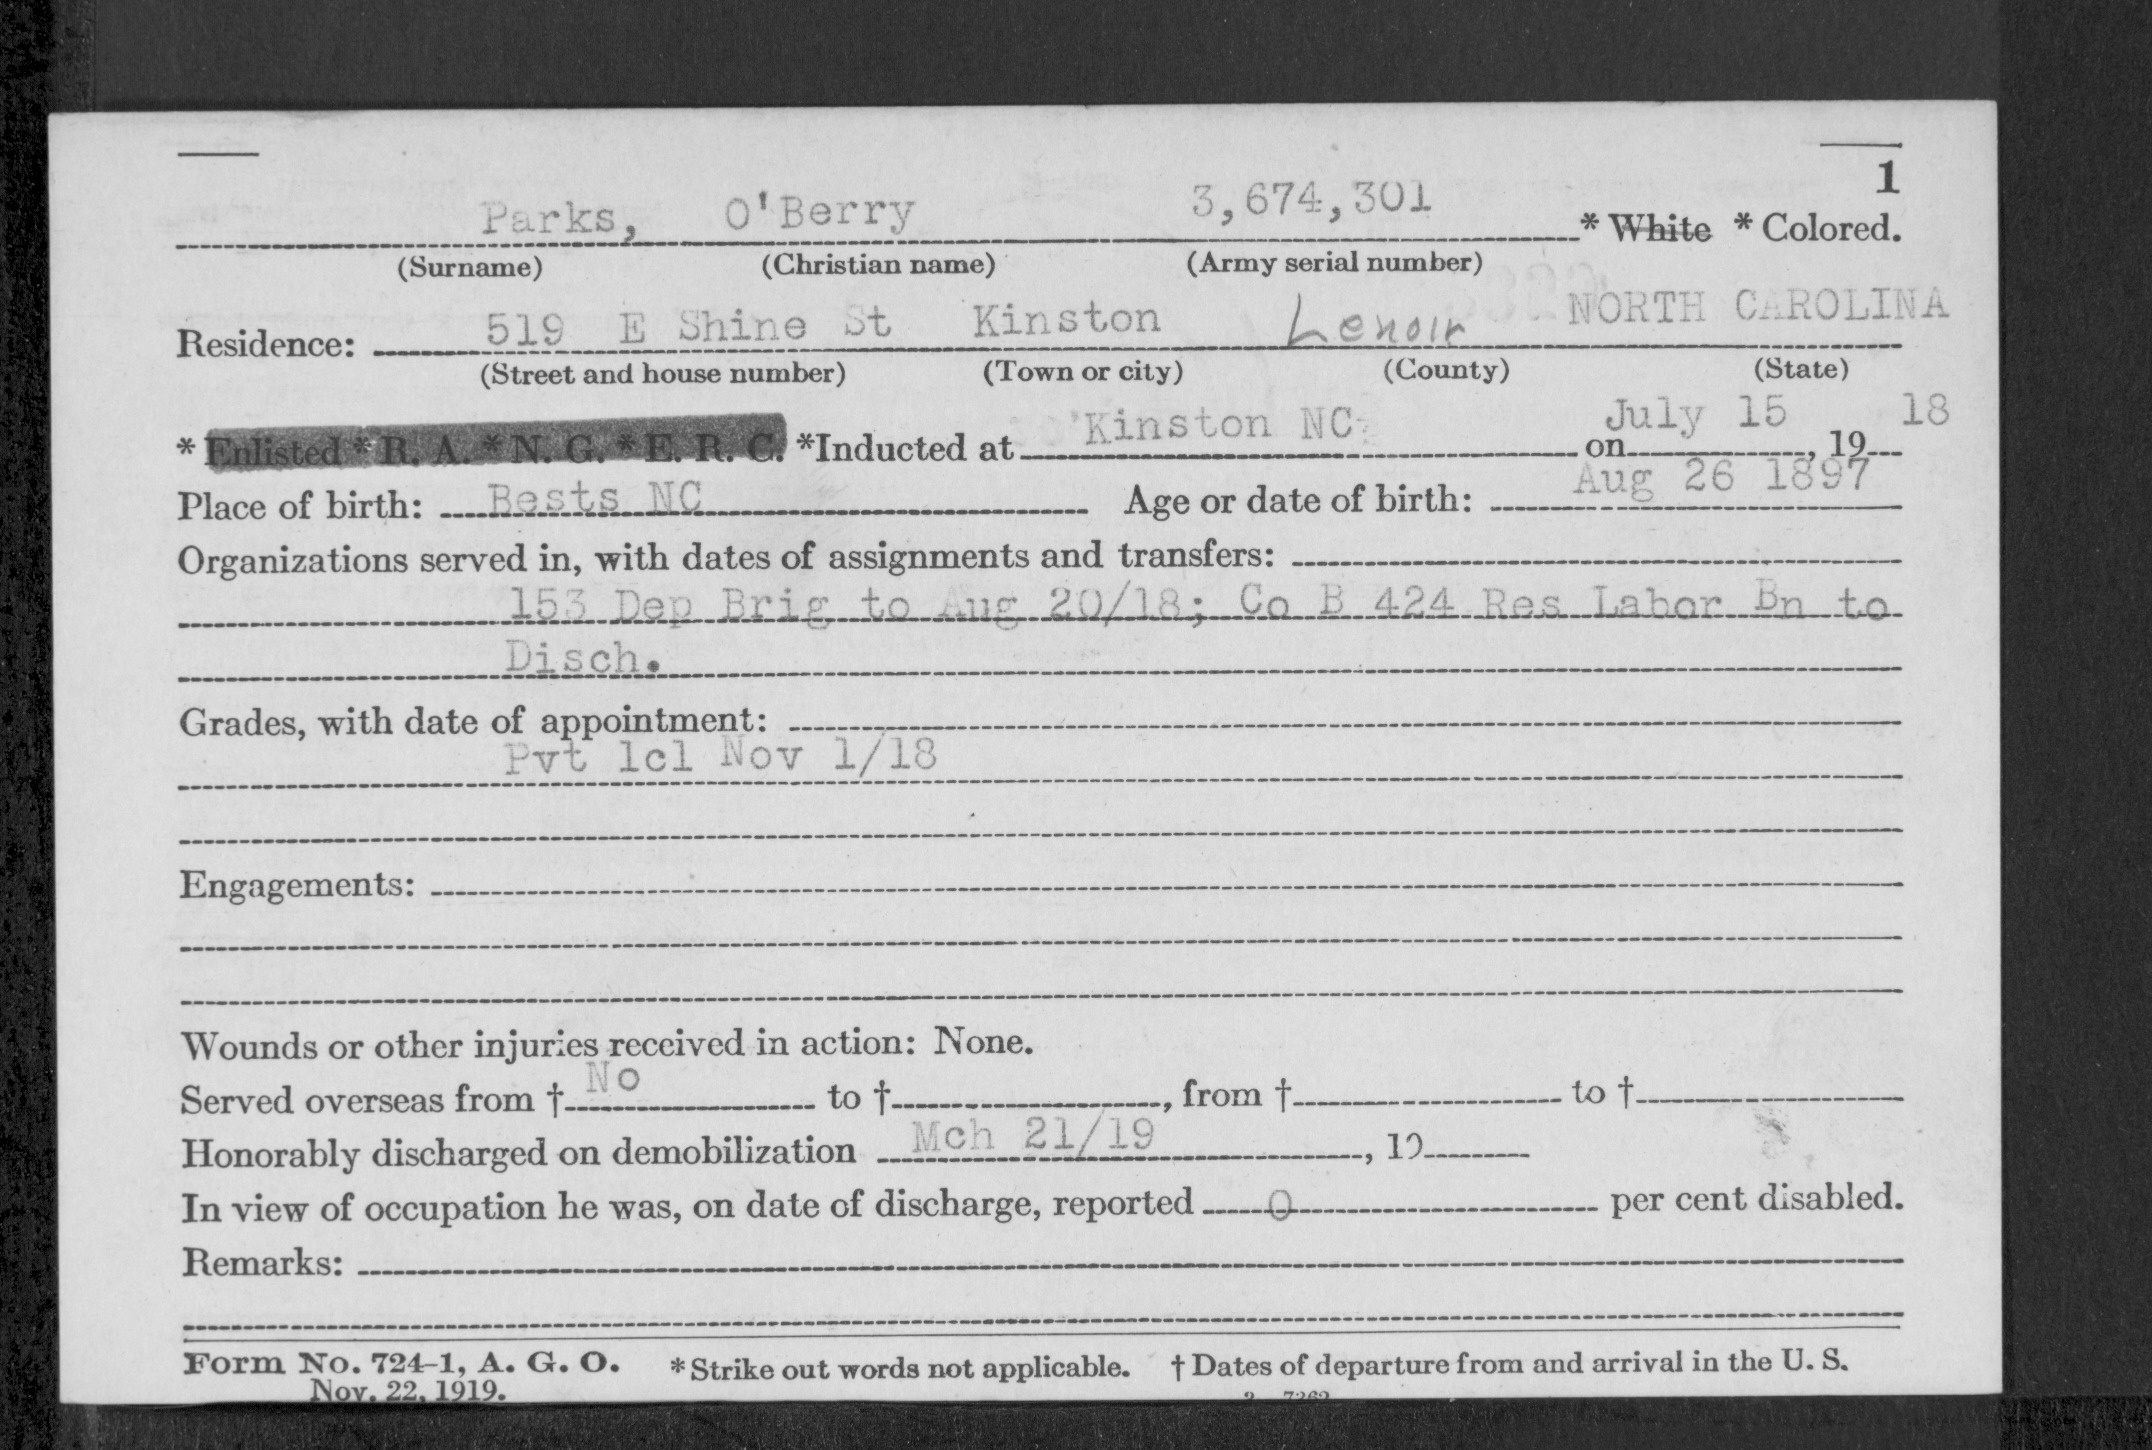 1
Parks, O'Berry 3,674,301 * White * Colored.
(Surname) (Christian name) (Army serial number)
Residence: 519 E Shine St Kinston Lenoir NORTH CAROLINA
(Street and house number) (Town or city) (County) (State)
* Enlisted * R. A. * N. G. * E. R. C. *Inducted at Kinston NC on July 15, 19 18
Place of birth: Bests NC Age or date of birth: Aug 26 1897
Organizations served in, with dates of assignments and transfers:
153 Dep Brig to Aug 20/18; Co B 424 Res Labor Bn to
Disch.
Grades, with date of appointment:
Pvt 1cl Nov 1/18
Engagements:
Wounds or other injuries received in action: None.
Served overseas from † No to †, from † to †
Honorably discharged on demobilization Mch 21/19, 19
In view of occupation he was, on date of discharge, reported 0 per cent disabled.
Remarks:
Form No. 724-1, A. G. O. * Strike out words not applicable. † Dates of departure from and arrival in the U. S.
Nov. 22, 1919.